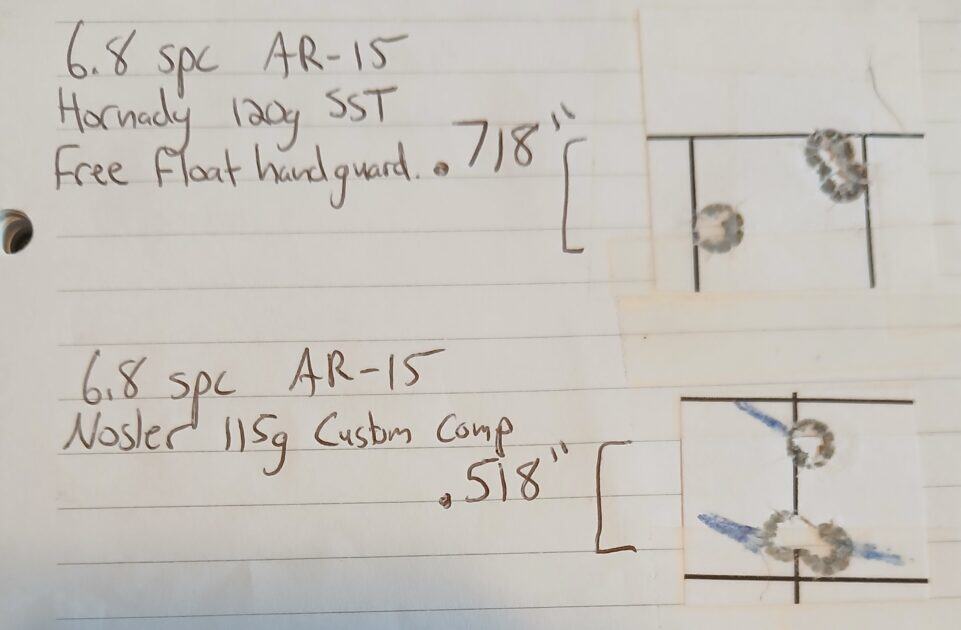 6.8 spc AR-15
Hornady 120g SST
Free Float handguard. .718"
6.8 spc AR-15
Nosler 115g Custom Comp
.518"